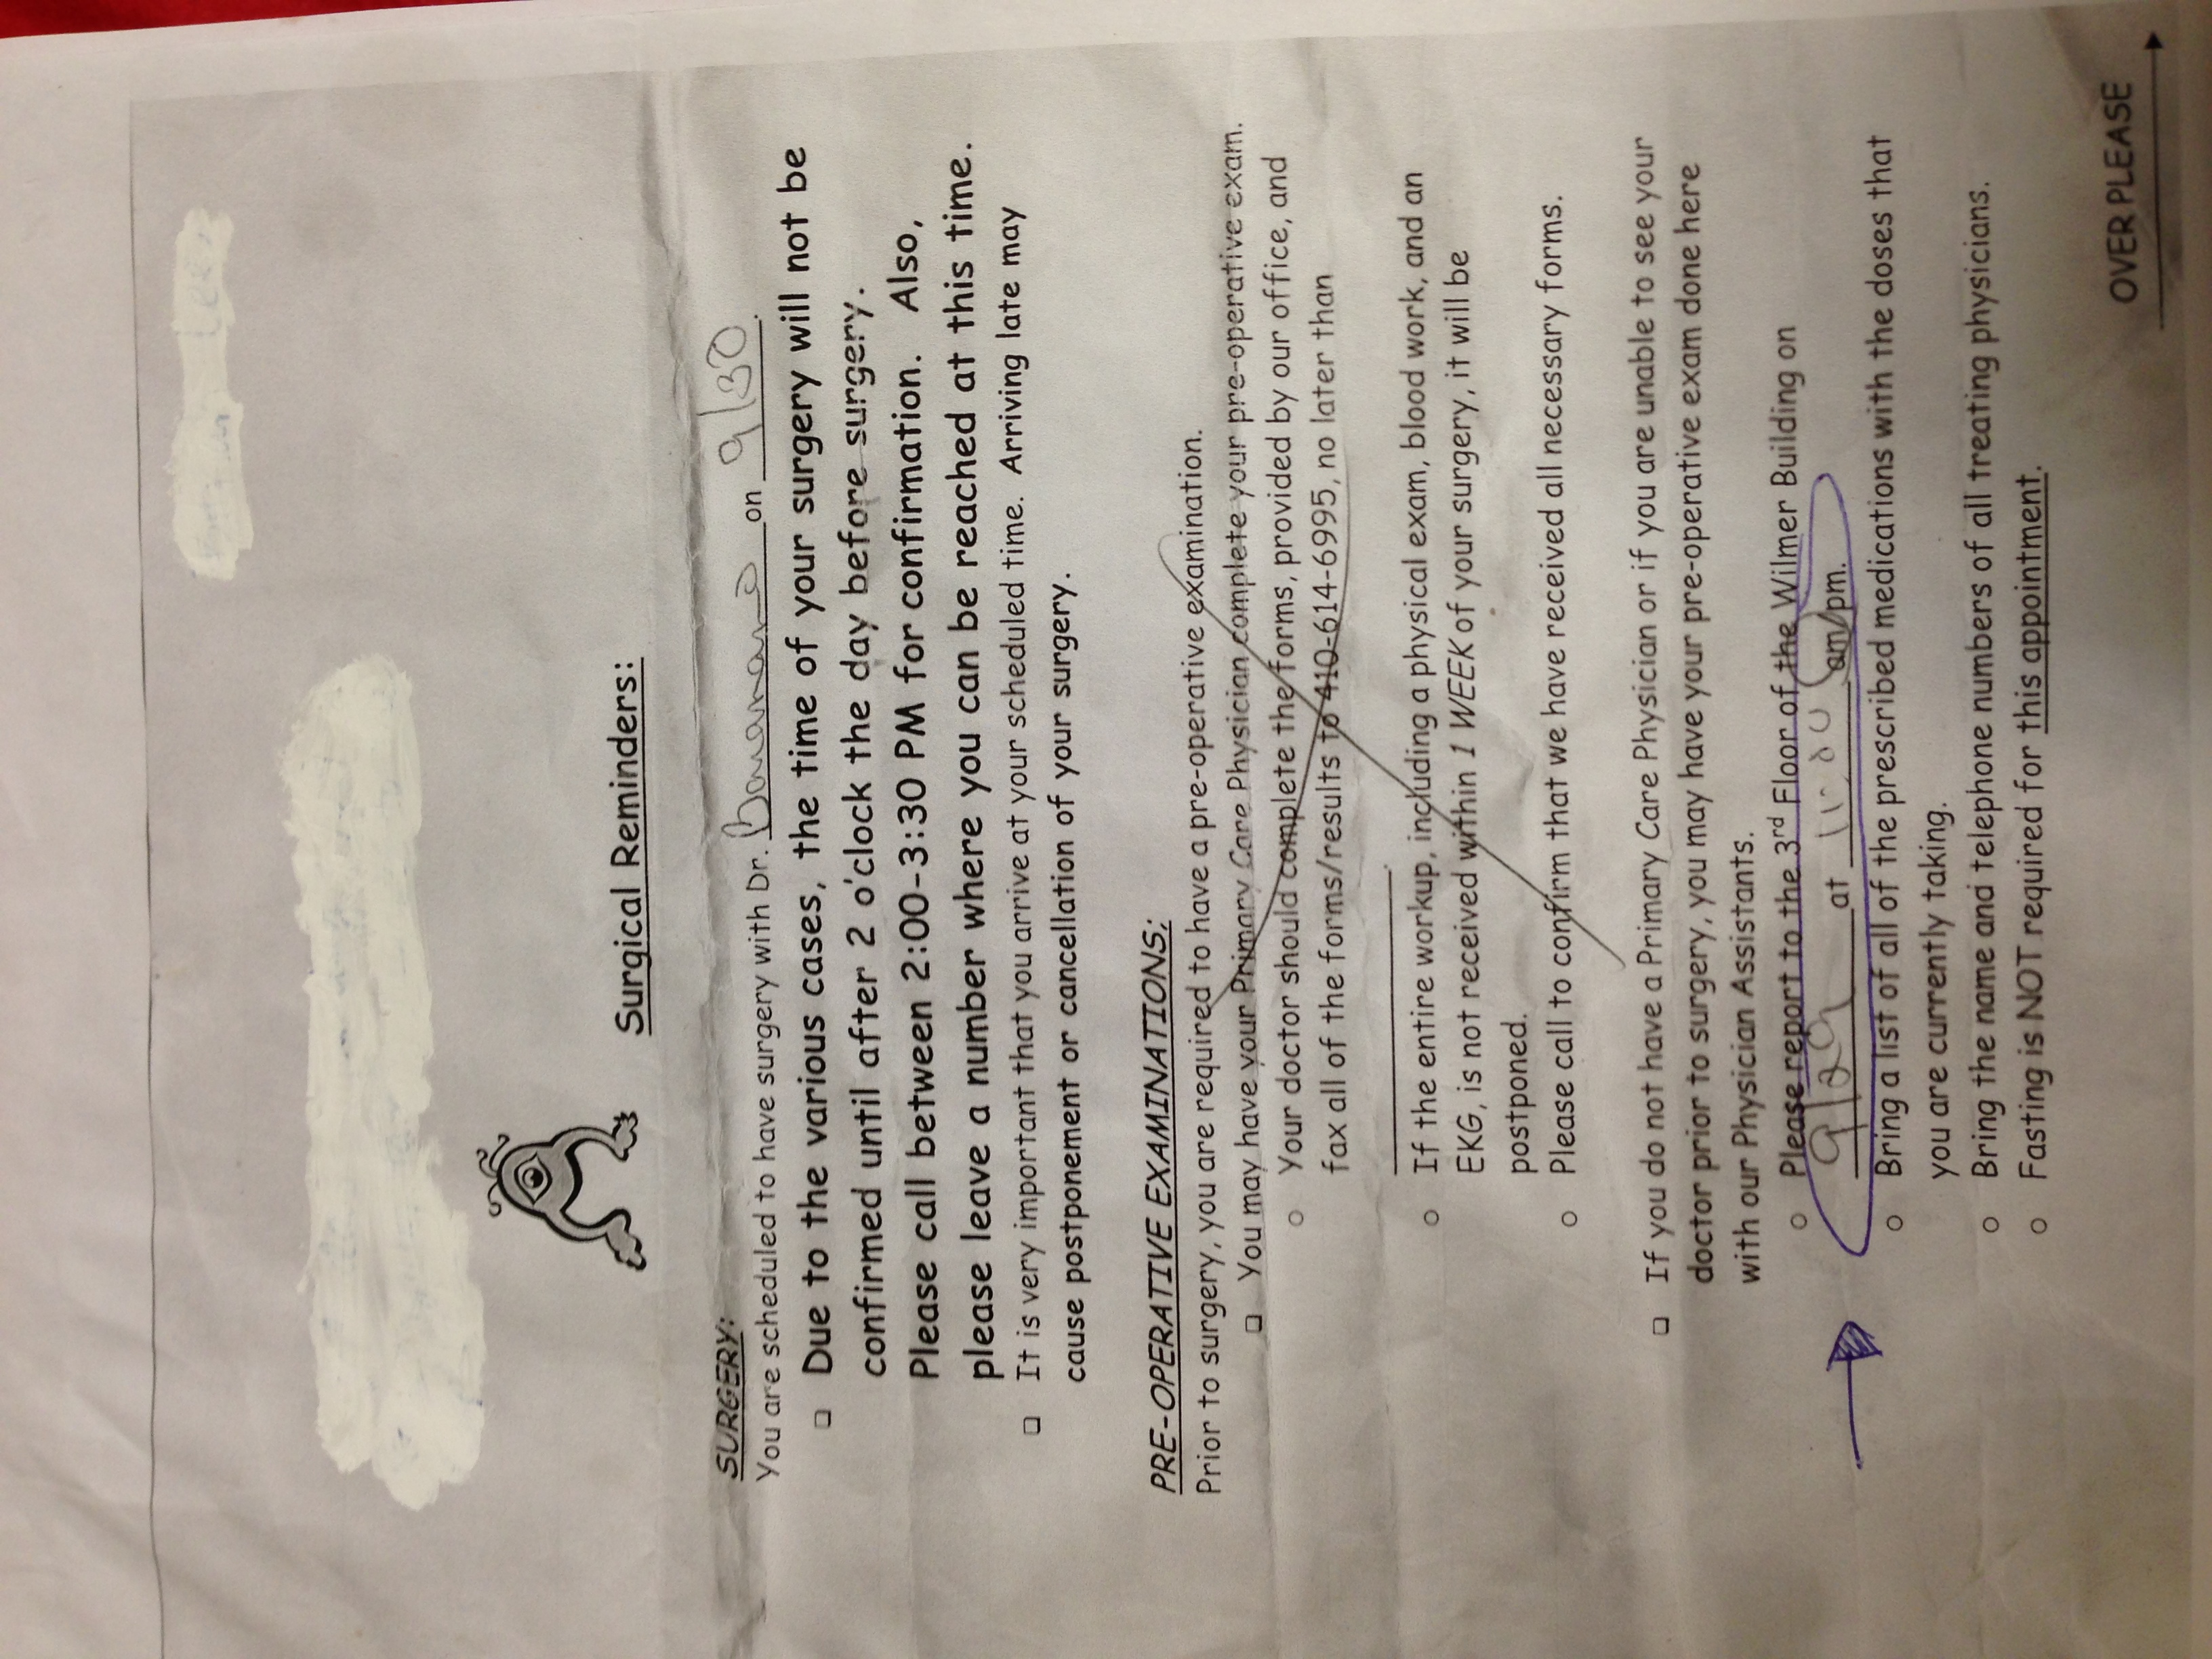 Surgical Reminders:
SURGERY:
You are scheduled to have surgery with Dr. on 9/30.
Due to the various cases, the time of your surgery will not be
confirmed until after 2 o'clock the day before surgery.
Please call between 2:00-3:30 PM for confirmation. Also,
please leave a number where you can be reached at this time.
It is very important that you arrive at your scheduled time. Arriving late may
cause postponement or cancellation of your surgery.
PRE-OPERATIVE EXAMINATIONS:
Prior to surgery, you are required to have a pre-operative examination.
You may have your Primary Care Physician complete your pre-operative exam.
Your doctor should complete the forms, provided by our office, and
fax all of the forms/results to 410-614-6995, no later than
If the entire workup, including a physical exam, blood work, and an
EKG, is not received within 1 WEEK of your surgery, it will be
postponed.
Please call to confirm that we have received all necessary forms.
If you do not have a Primary Care Physician or if you are unable to see your
doctor prior to surgery, you may have your pre-operative exam done here
with our Physician Assistants.
Please report to the 3rd Floor of the Wilmer Building on
9/29 at 11:00 am/pm.
Bring a list of all of the prescribed medications with the doses that
you are currently taking.
Bring the name and telephone numbers of all treating physicians.
Fasting is NOT required for this appointment.
OVER PLEASE